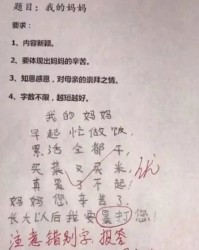 题目：我的妈妈
要求：
1、内容新颖。
2、要体现出妈妈的辛苦。
3、知恩感恩，对母亲的崇拜之情。
4、字数不限，越短越好。
我的妈妈
早起忙做饭，
累活全都干，
买菜又买米，
真是了不起！
妈妈您辛苦了，
长大以后我要暴打您！
优
注意错别字 报答